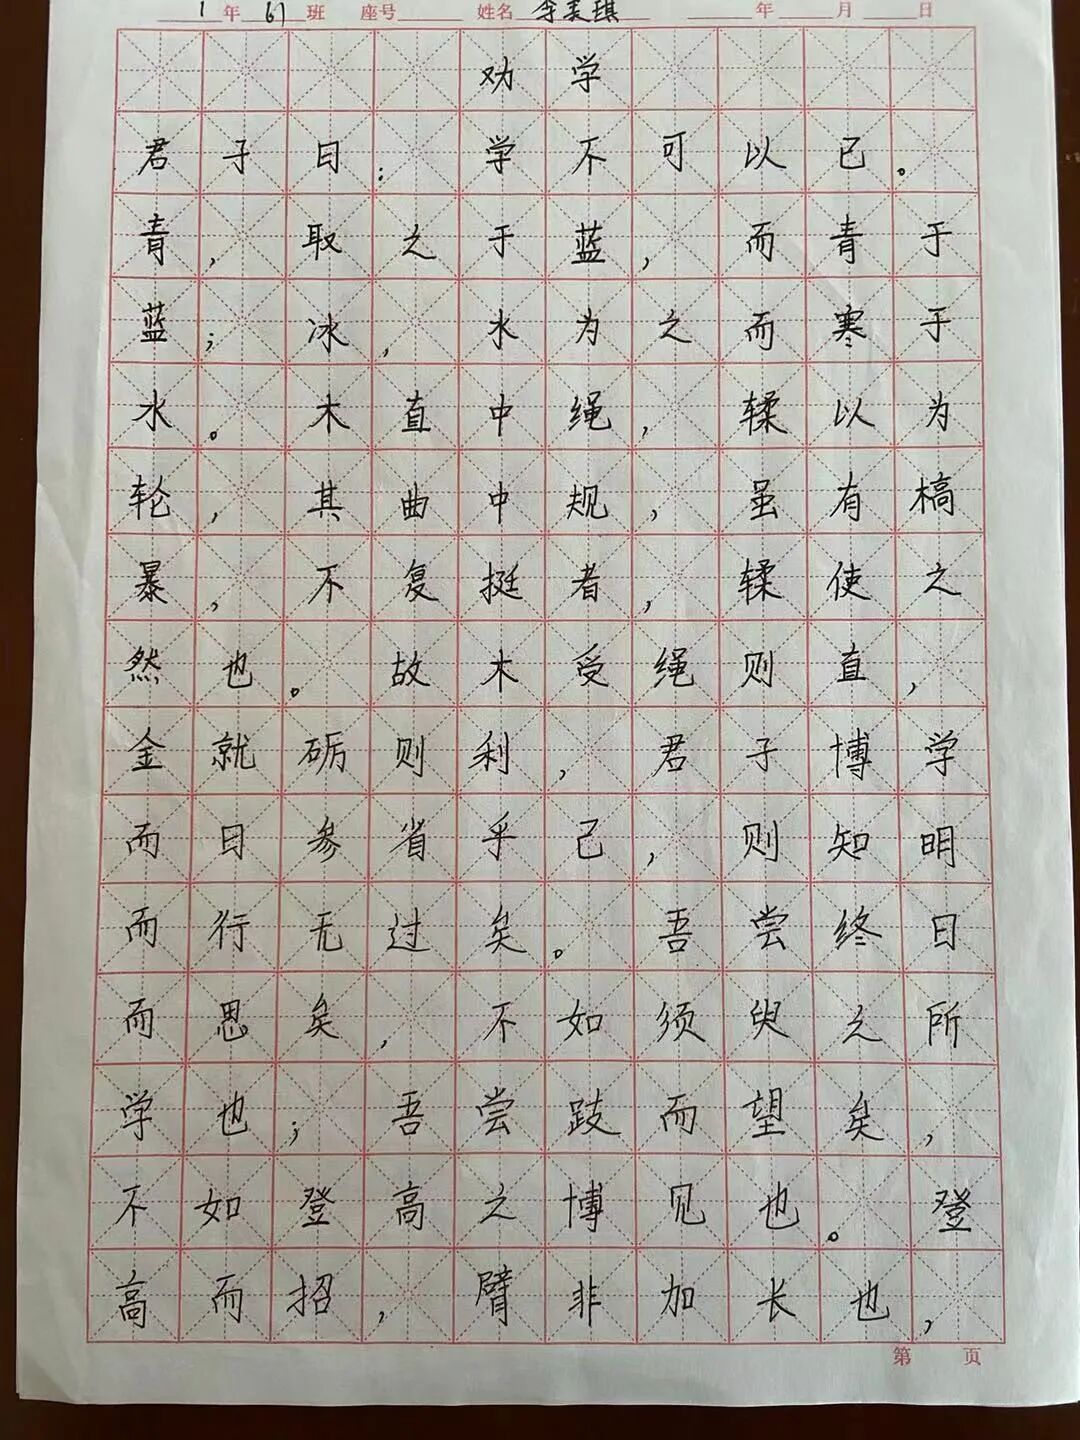 1 年 61 班 座号 姓名 李美琪 年 月 日
劝学
君子曰：学不可以已。
青，取之于蓝，而青于
蓝；冰，水为之而寒于
水。木直中绳，輮以为
轮，其曲中规，虽有槁
暴，不复挺者，輮使之
然也。故木受绳则直，
金就砺则利，君子博学
而日参省乎己，则知明
而行无过矣。吾尝终日
而思矣，不如须臾之所
学也；吾尝跂而望矣，
不如登高之博见也。登
高而招，臂非加长也，
第 页